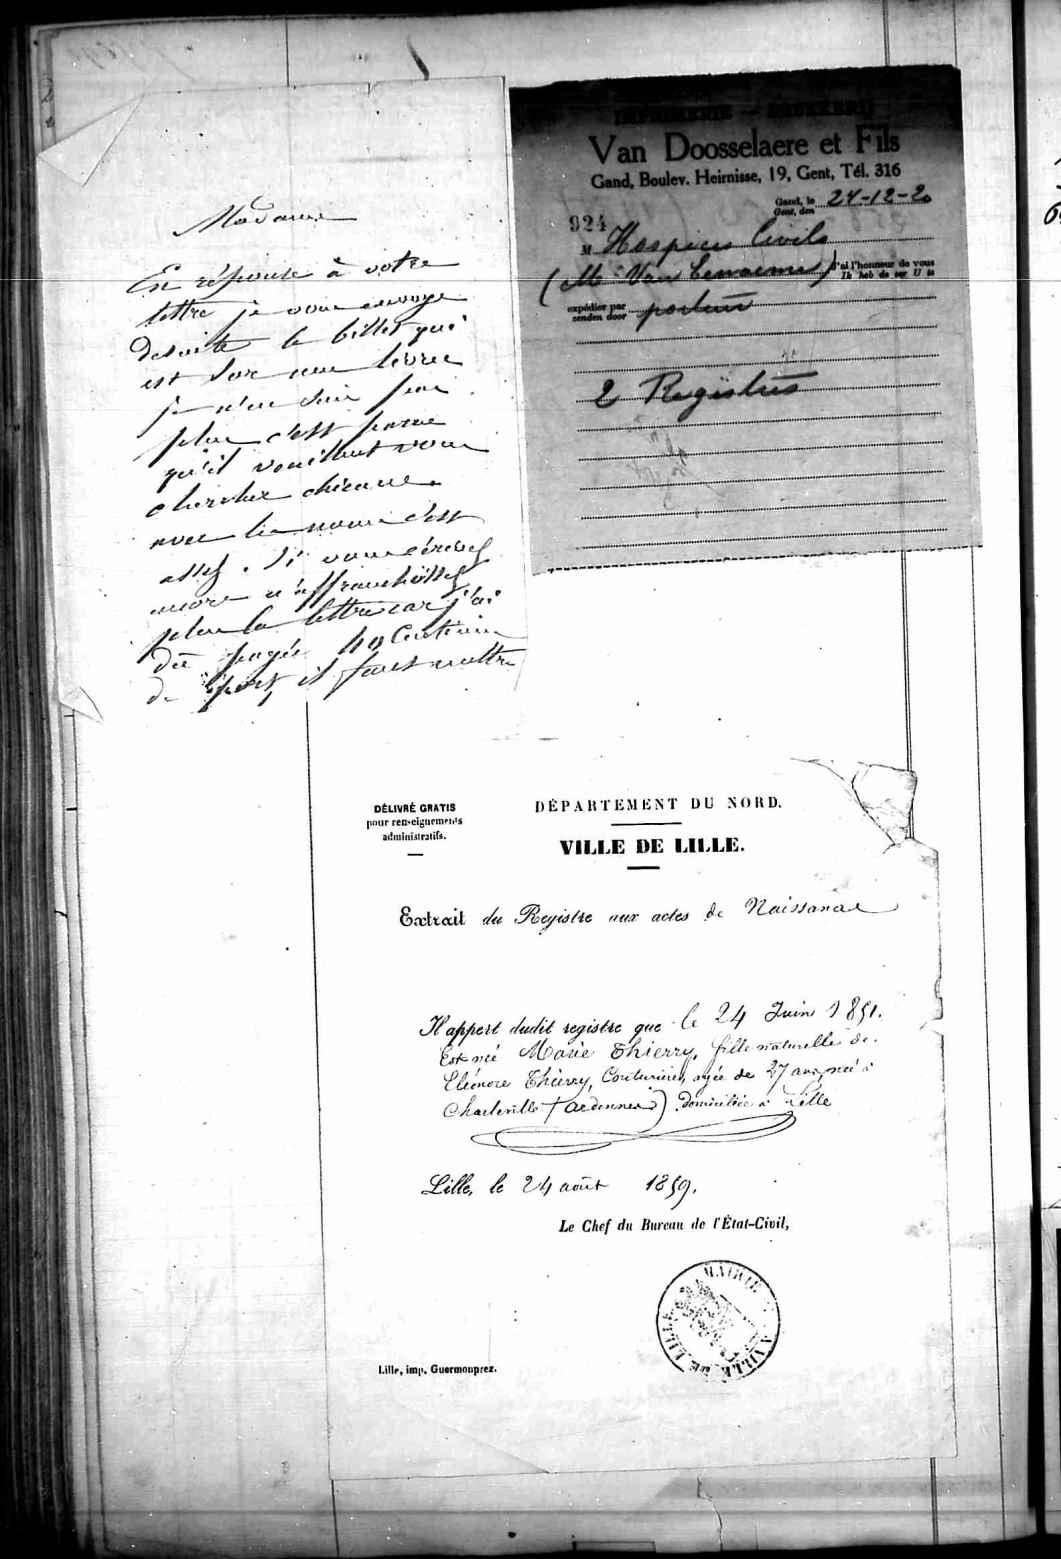 Madame
En réponse à votre
lettre je vous envoye
desuite le billet qui
est sur une livree
je n'en suis pas
plus c'est parce
qu'il
chercher chicane.
avec les noms c'est
assez. Si vous écrivez
encore n'affranchissez
plus la lettre car j'ai
dû payée 40 Centime
de port, il faut mettre
IMPRIMERIE — DRUKKERIJ
Van Doosselaere et Fils
Gand, Boulev. Heirnisse, 19, Gent, Tél. 316
Gand, le 24-12-20
Gent, den
924
M Hospices Civils
(Mr Van) j'ai l'honneur de vous
Ik heb de eer U te
expédier par porteur
zenden door
2 Registres
DÉLIVRÉ GRATIS
pour renseignements
administratifs.
DÉPARTEMENT DU NORD.
VILLE DE LILLE.
Extrait du Registre aux actes de Naissance
Il appert dudit registre que le 24 Juin 1851.
Est née Marie Thierry, fille naturelle de
Eléonore Thierry, Couturière, agée de 27 ans, née à
Charleville (ardennes) domiciliée à Lille
Lille, le 24 août 1859.
Le Chef du Bureau de l'État-Civil,
MAIRIE
VILLE DE LILLE
Lille, imp. Guermonprez.